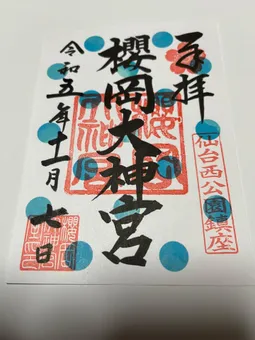 奉拝
櫻岡大神宮
仙台西公園鎮座
令和五年十一月
七日